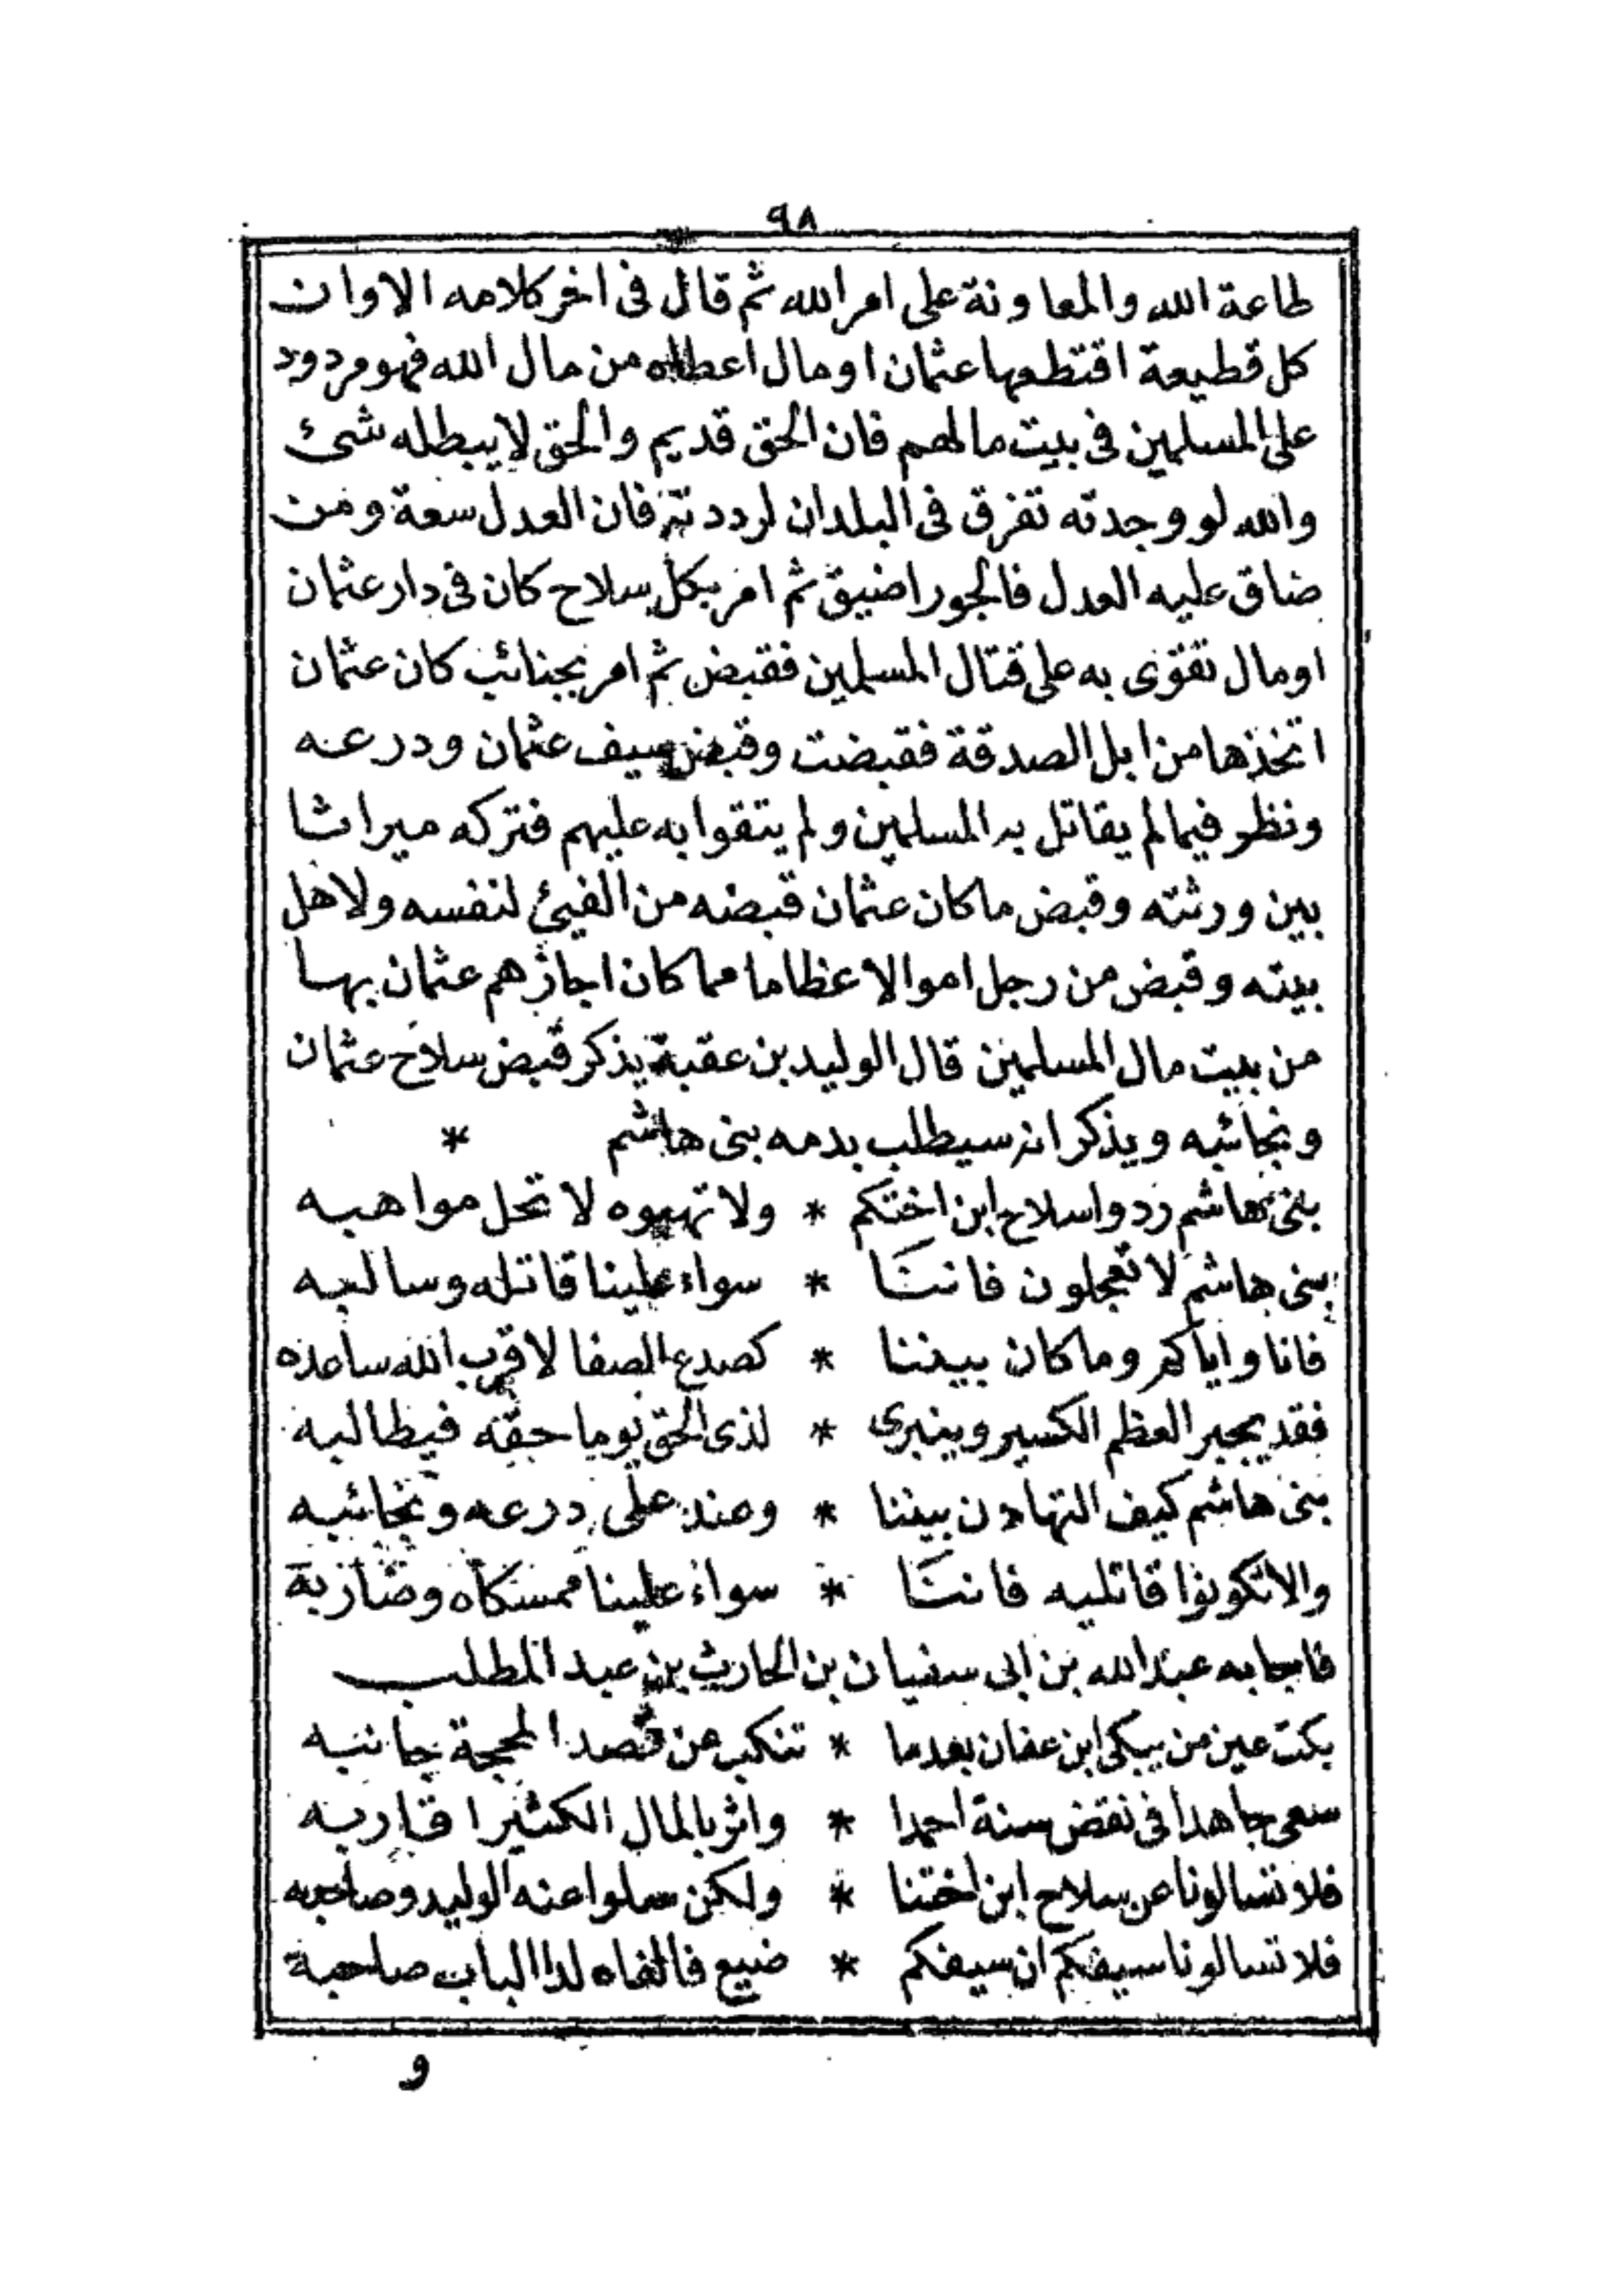 ٩٨
طاعة الله والمعاونة على امر الله ثم قال فى اخر كلامه الا وان
كل قطيعة اقتطعها عثمان او مال اعطاه من مال الله فهو مردود
على المسلمين فى بيت مالهم فان الحق قديم والحق لا يبطله شئ
والله لو وجدته تفرق فى البلدان لرددته فان العدل سعة ومن
ضاق عليه العدل فالجور اضيق ثم امر بكل سلاح كان فى دار عثمان
او مال تقوى به على قتال المسلمين فقبض ثم امر بجنائب كان عثمان
اتخذها من ابل الصدقة فقبضت وقبض سيف عثمان ودرعه
ونظر فيما لم يقاتل به المسلمين ولم يتقوا به عليهم فتركه ميراثا
بين ورثته وقبض ما كان عثمان قبضه من الفيئ لنفسه ولاهل
بيته وقبض من رجل اموالا عظاما مما كان اجازهم عثمان بها
من بيت مال المسلمين قال الوليد بن عقبة يذكر قبض سلاح عثمان
ونجائبه ويذكر انه سيطلب بدمه بنى هاشم *
بنى هاشم ردوا سلاح ابن اختكم * ولا تهبوه لا تحل مواهبه
بنى هاشم لا تعجلون فاننا * سواء علينا قاتله وسالبه
فانا واياكم وما كان بيننا * كصدع الصفا لا قرب الله ساعده
فقد يجبر العظم الكسير وينبرى * لذى الحق يوما حقه فيطالبه
بنى هاشم كيف التهادن بيننا * وعند على درعه ونجائبه
والا تكونوا قاتليه فاننا * سواء علينا ممسكاه وضاربة
فاجابه عبد الله بن ابى سفيان بن الحارث بن عبد المطلب
بكت عين من يبكى ابن عفان بعدما * تنكب عن قصد المحجة جانبه
سعى جاهدا فى نقض سنة احمدا * واثر بالمال الكثيرا قاربه
فلا تسالونا عن سلاح ابن اختنا * ولكن سلوا عنه الوليد وصاحبه
فلا تسالونا سيفكم ان سيفكم * ضيع فالقاه لدا الباب صاحبة
و